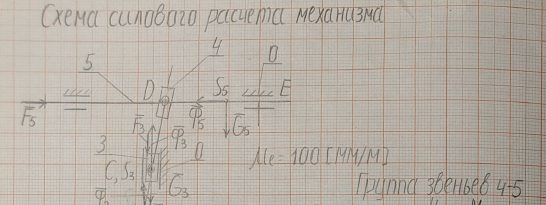 Схема силового расчета механизма
4
5
0
D
S5
E
F5
Φ5
G5
F3
Φ3
3
0
C, S3
G3
Me = 100 [мм/м]
Группа звеньев 4-5